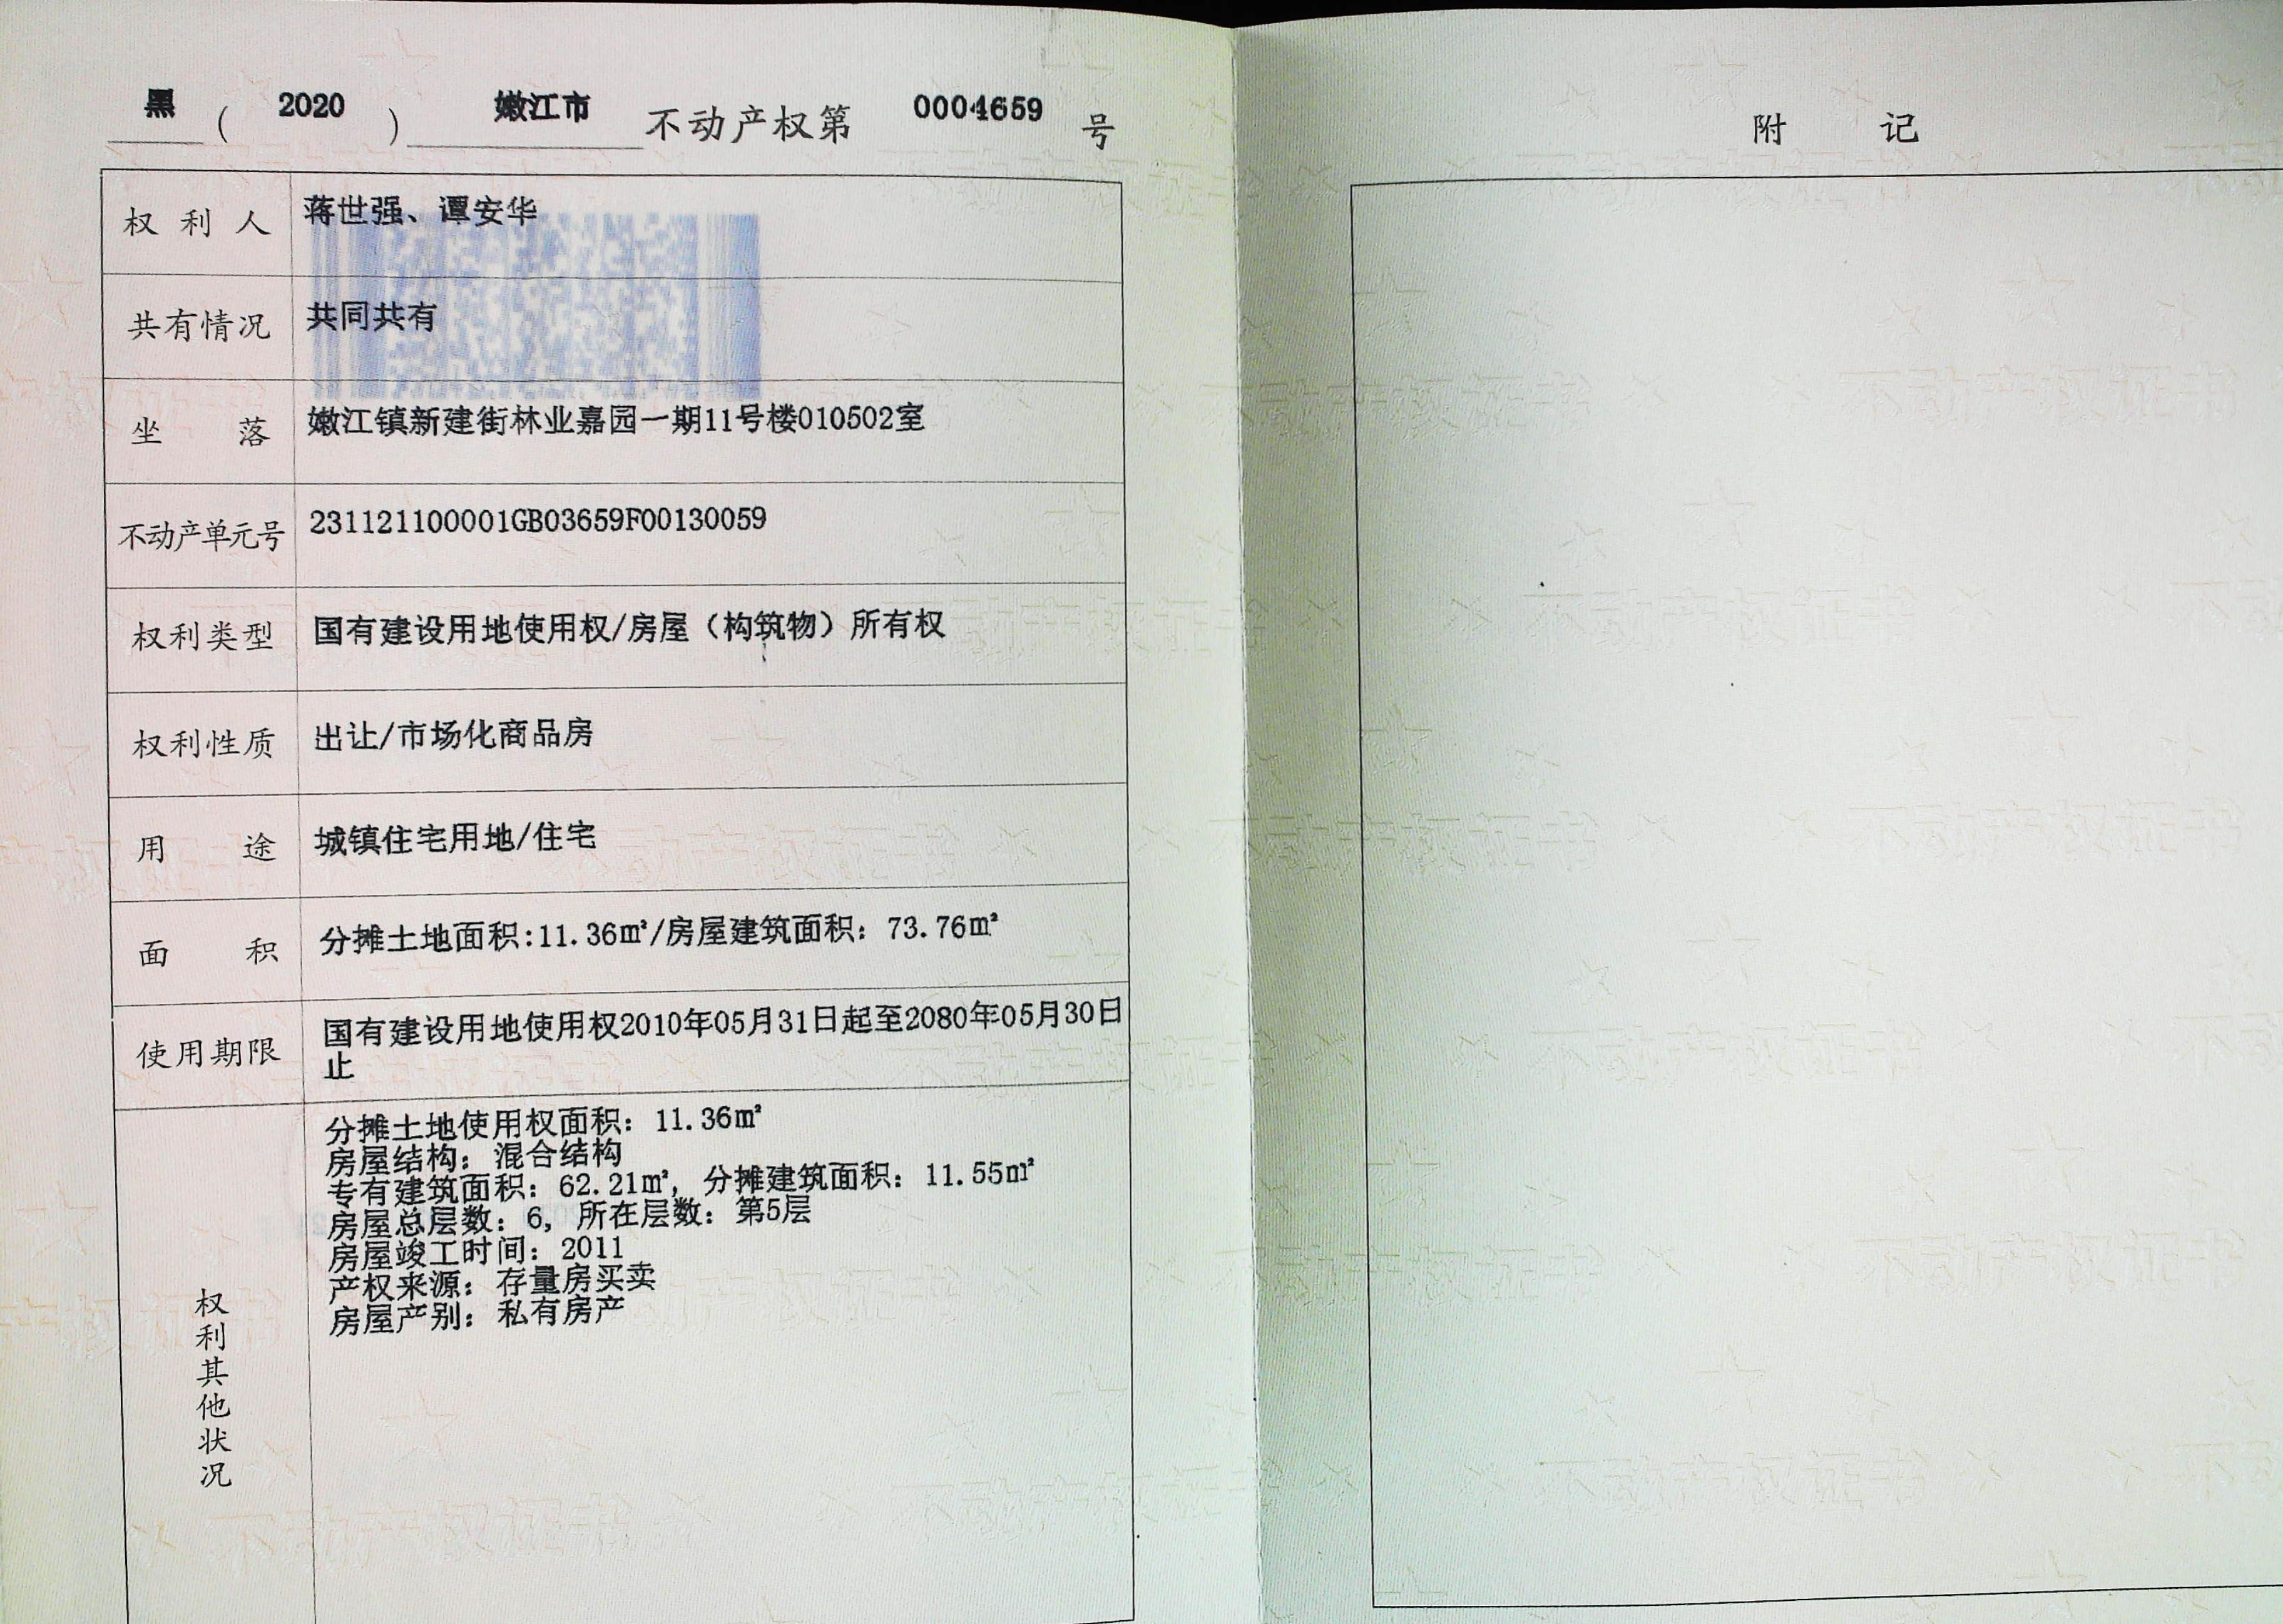 黑（2020）嫩江市不动产权第0004659号
权利人 蒋世强、谭安华
共有情况 共同共有
坐落 嫩江镇新建街林业嘉园一期11号楼010502室
不动产单元号 231121100001GB03659F00130059
权利类型 国有建设用地使用权/房屋（构筑物）所有权
权利性质 出让/市场化商品房
用途 城镇住宅用地/住宅
面积 分摊土地面积:11.36㎡/房屋建筑面积：73.76㎡
使用期限 国有建设用地使用权2010年05月31日起至2080年05月30日
止
权利其他状况
分摊土地使用权面积：11.36㎡
房屋结构：混合结构
专有建筑面积：62.21㎡，分摊建筑面积：11.55㎡
房屋总层数：6，所在层数：第5层
房屋竣工时间：2011
产权来源：存量房买卖
房屋产别：私有房产
附记